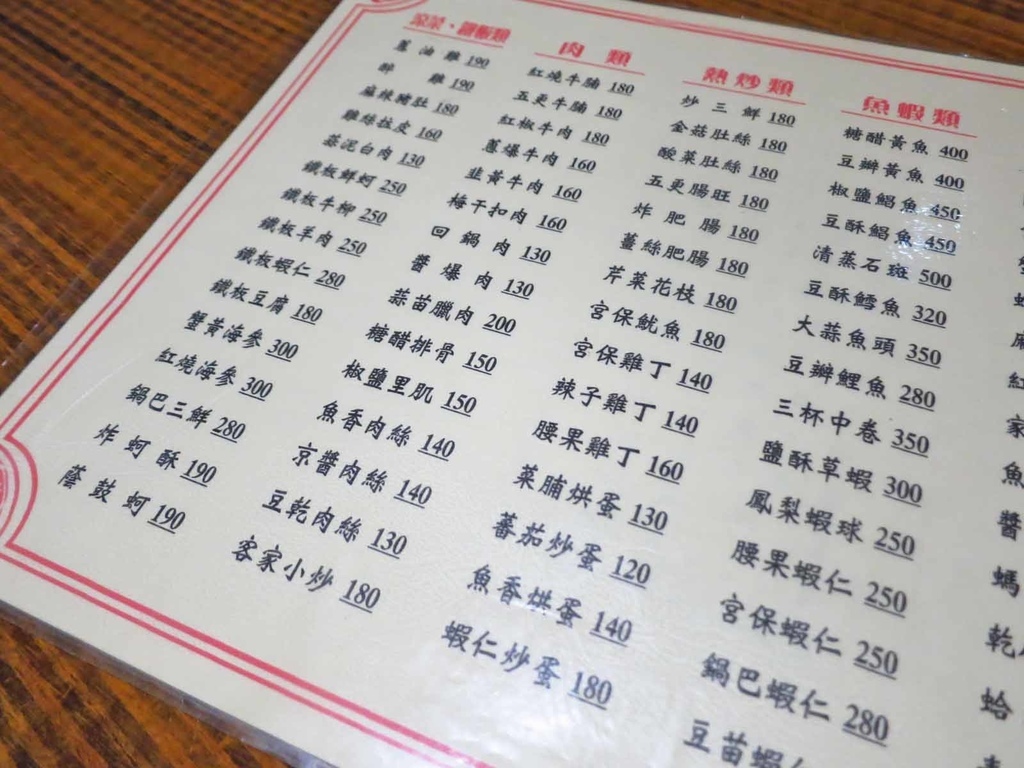 涼菜、鐵板類
蔥油雞 190
醉雞 190
麻辣豬肚 180
雞絲拉皮 160
蒜泥白肉 130
鐵板鮮蚵 250
鐵板牛柳 250
鐵板羊肉 250
鐵板蝦仁 280
鐵板豆腐 180
蟹黃海參 300
紅燒海參 300
鍋巴三鮮 280
炸蚵酥 190
蔭鼓蚵 190
肉類
紅燒牛腩 180
五更牛腩 180
紅椒牛肉 180
蔥爆牛肉 160
韭黃牛肉 160
梅干扣肉 160
回鍋肉 130
醬爆肉 130
蒜苗臘肉 200
糖醋排骨 150
椒鹽里肌 150
魚香肉絲 140
京醬肉絲 140
豆乾肉絲 130
客家小炒 180
熱炒類
炒三鮮 180
金菇肚絲 180
酸菜肚絲 180
五更腸旺 180
炸肥腸 180
薑絲肥腸 180
芹菜花枝 180
宮保魷魚 180
宮保雞丁 140
辣子雞丁 140
腰果雞丁 160
菜脯烘蛋 130
蕃茄炒蛋 120
魚香烘蛋 140
蝦仁炒蛋 180
魚蝦類
糖醋黃魚 400
豆瓣黃魚 400
椒鹽鯧魚 450
豆酥鯧魚 450
清蒸石斑 500
豆酥鱈魚 320
大蒜魚頭 350
豆瓣鯉魚 280
三杯中卷 350
鹽酥草蝦 300
鳳梨蝦球 250
腰果蝦仁 250
宮保蝦仁 250
鍋巴蝦仁 280
豆苗蝦仁
紅
家
魚
醬
螞
乾
蛤